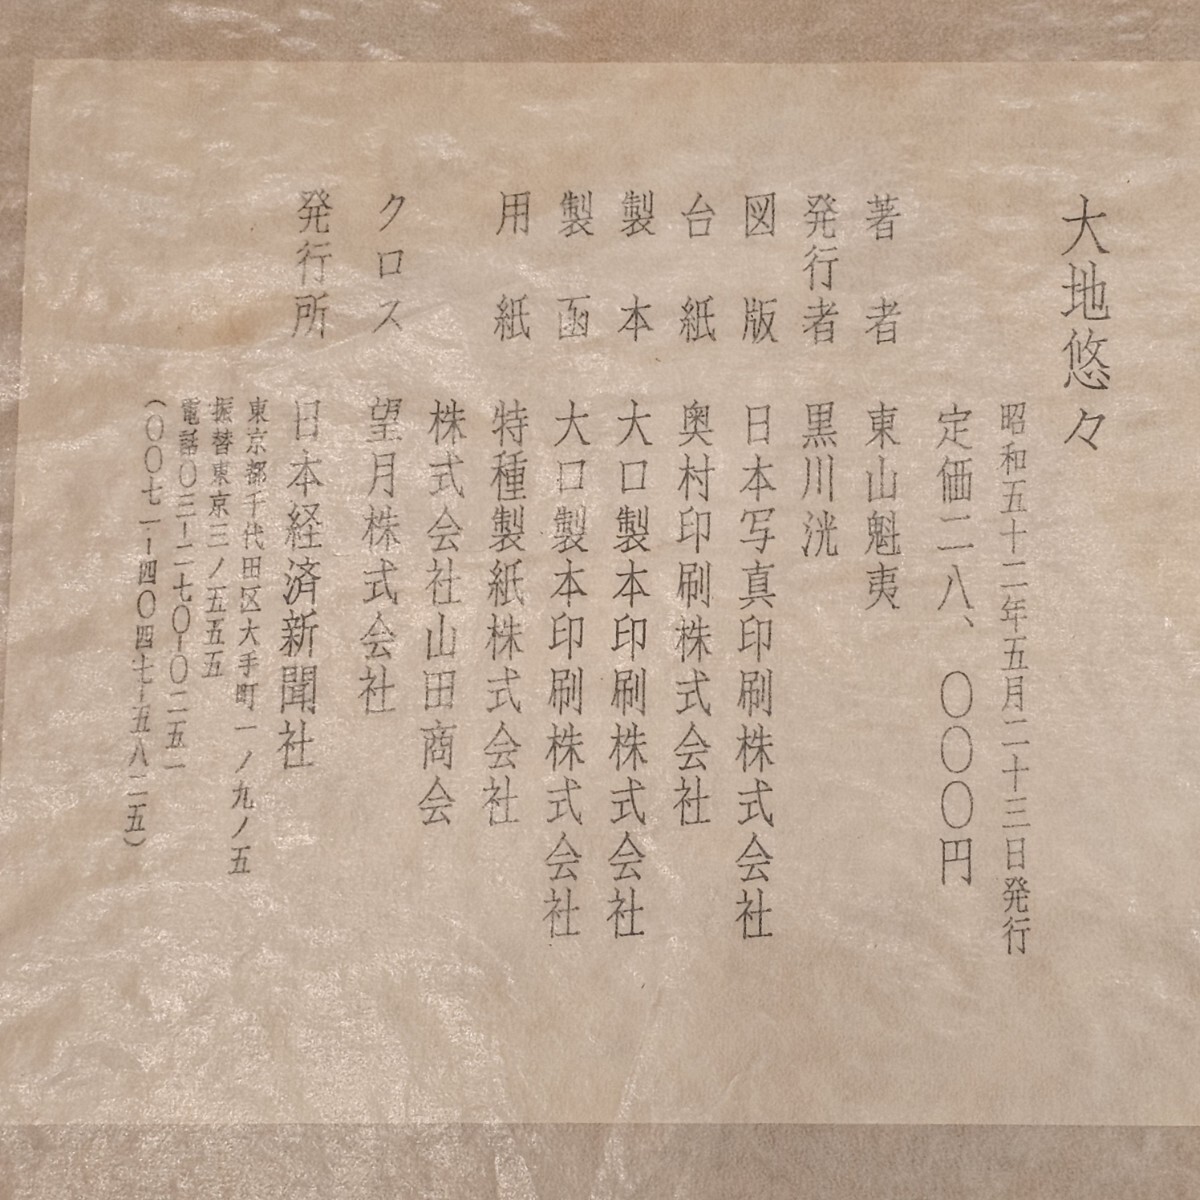 大地悠々
昭和五十二年五月二十三日発行
定価二八、〇〇〇円
著者 東山魁夷
発行者 黒川洸
図版 日本写真印刷株式会社
台紙 奥村印刷株式会社
製本 大口製本印刷株式会社
製函 大口製本印刷株式会社
用紙 特種製紙株式会社
株式会社山田商会
クロス 望月株式会社
発行所 日本経済新聞社
東京都千代田区大手町一ノ九ノ五
振替東京三ノ五五五
電話〇三―二七〇―〇二五一
(〇〇七一―四〇四七―五八二五)